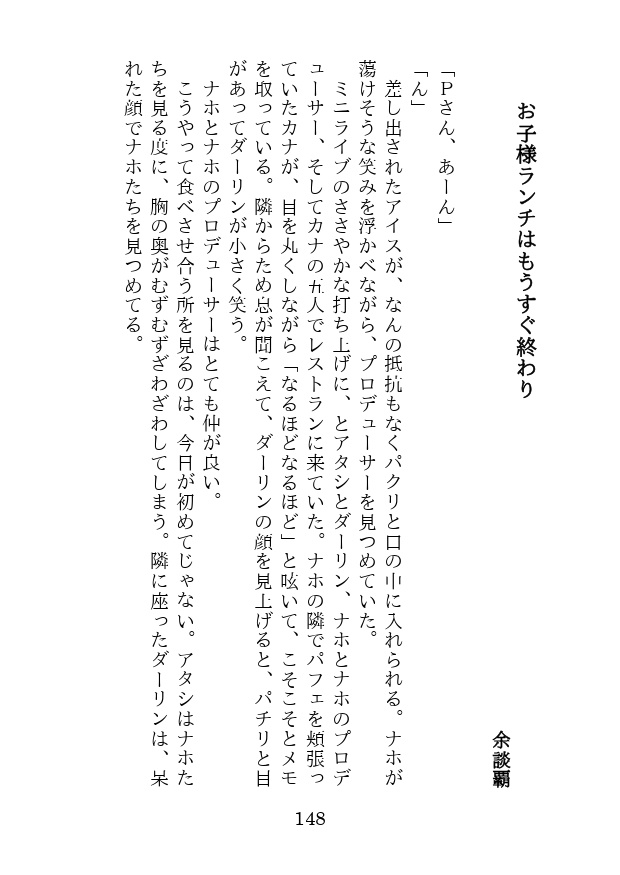 お子様ランチはもうすぐ終わり
余談覇
「Ｐさん、あーん」
「ん」
　差し出されたアイスが、なんの抵抗もなくパクリと口の中に入れられる。ナホが
蕩けそうな笑みを浮かべながら、プロデューサーを見つめていた。
　ミニライブのささやかな打ち上げに、とアタシとダーリン、ナホとナホのプロデ
ューサー、そしてカナの五人でレストランに来ていた。ナホの隣でパフェを頬張っ
ていたカナが、目を丸くしながら「なるほどなるほど」と呟いて、こそこそとメモ
を取っている。隣からため息が聞こえて、ダーリンの顔を見上げると、パチリと目
があってダーリンが小さく笑う。
　ナホとナホのプロデューサーはとても仲が良い。
　こうやって食べさせ合う所を見るのは、今日が初めてじゃない。アタシはナホた
ちを見る度に、胸の奥がむずむずざわざわしてしまう。隣に座ったダーリンは、呆
れた顔でナホたちを見つめてる。
148